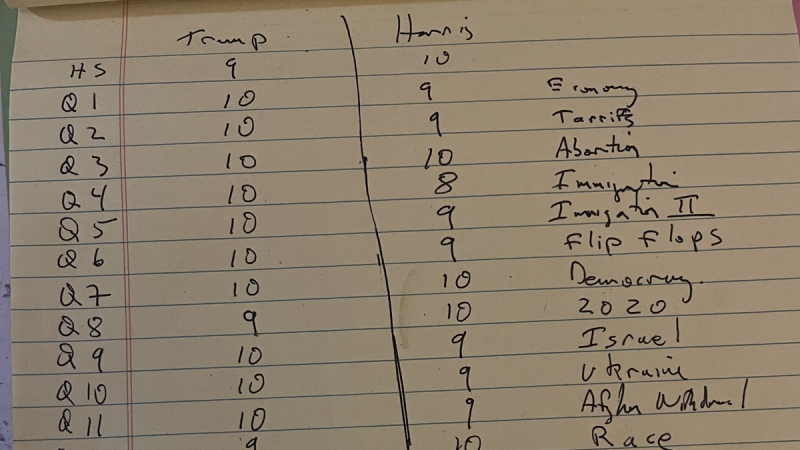 Trump Harris
HS 9 10
Q1 10 9 Economy
Q2 10 9 Tarrifs
Q3 10 10 Abortion
Q4 10 8 Immigration
Q5 10 9 Immigration II
Q6 10 9 flip flops
Q7 10 10 Democracy
Q8 9 10 2020
Q9 10 9 Israel
Q10 10 9 Ukraine
Q11 10 9 Afghan Withdrawal
9 10 Race